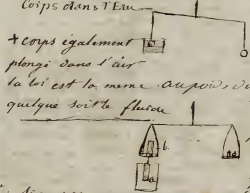 Corps dans l'Eau
+ corps également
plongé dans l'air
la loi est la meme au poids du
quelque soit le fluide
b.
a